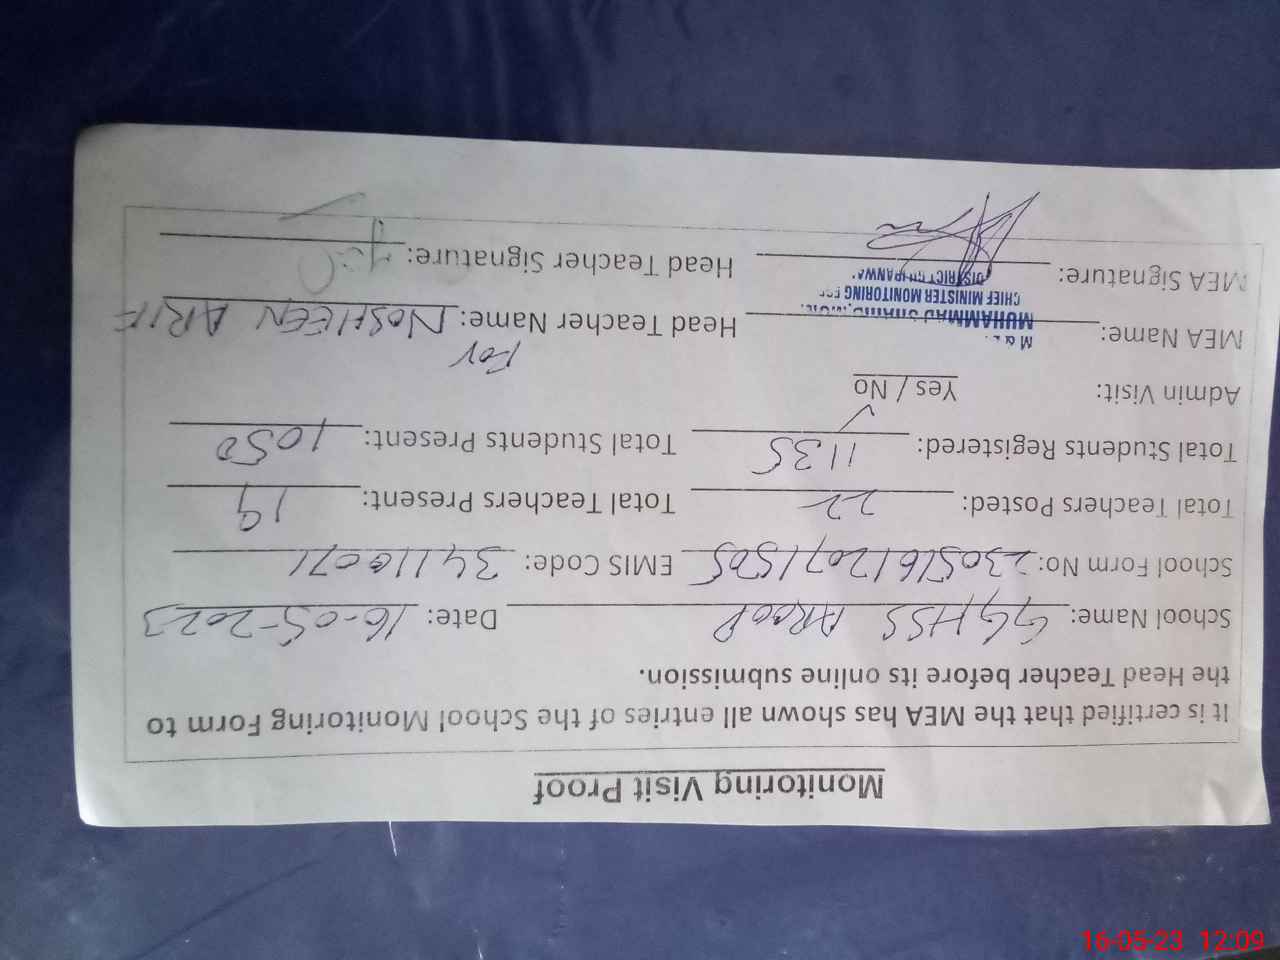 Monitoring Visit Proof
It is certified that the MEA has shown all entries of the School Monitoring Form to
the Head Teacher before its online submission.
School Name: GGHSS AROOP Date: 16-05-2023
School Form No: 23051612071505 EMIS Code: 34110071
Total Teachers Posted: 22 Total Teachers Present: 19
Total Students Registered: 1135 Total Students Present: 1050
Admin Visit: Yes / No
For
MEA Name: MUHAMMAD Head Teacher Name: NOSHEEN ARIF
CHIEF MINISTER MONITORING
MEA Signature: DISTRICT Head Teacher Signature:
16-05-23 12:09